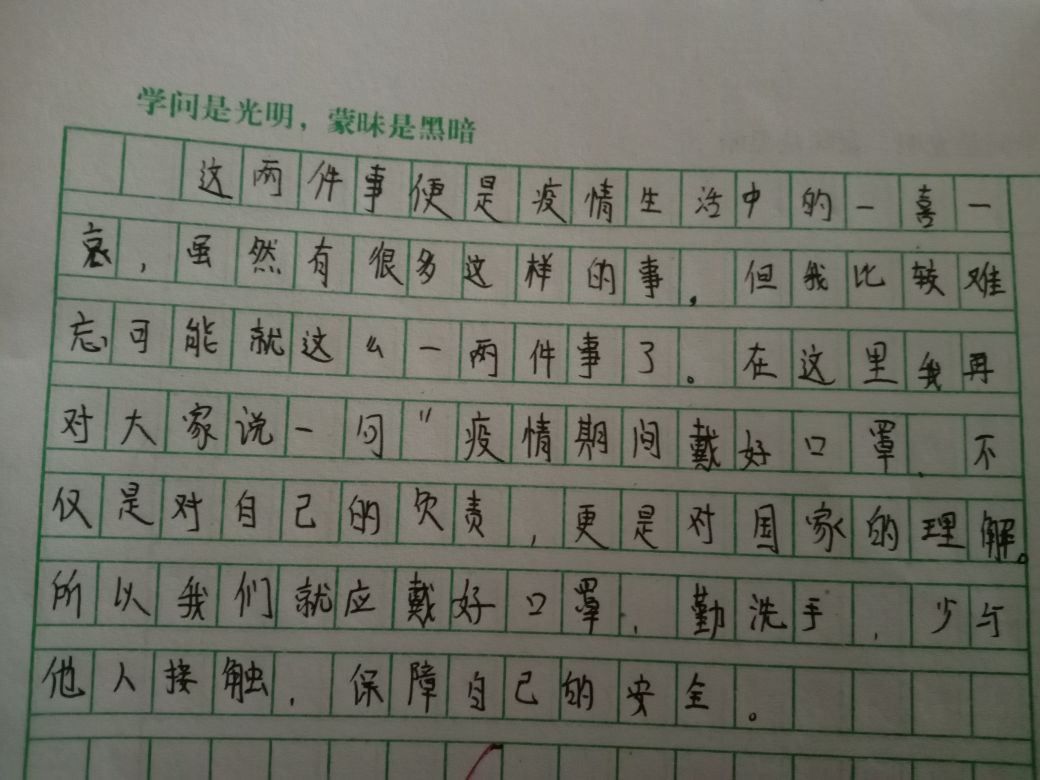 学问是光明，蒙昧是黑暗
这两件事便是疫情生活中的一喜一
哀，虽然有很多这样的事。但我比较难
忘可能就这么一两件事了。在这里我再
对大家说一句“疫情期间戴好口罩，不
仅是对自己的负责，更是对国家的理解。
所以我们就应戴好口罩，勤洗手，少与
他人接触，保障自己的安全。